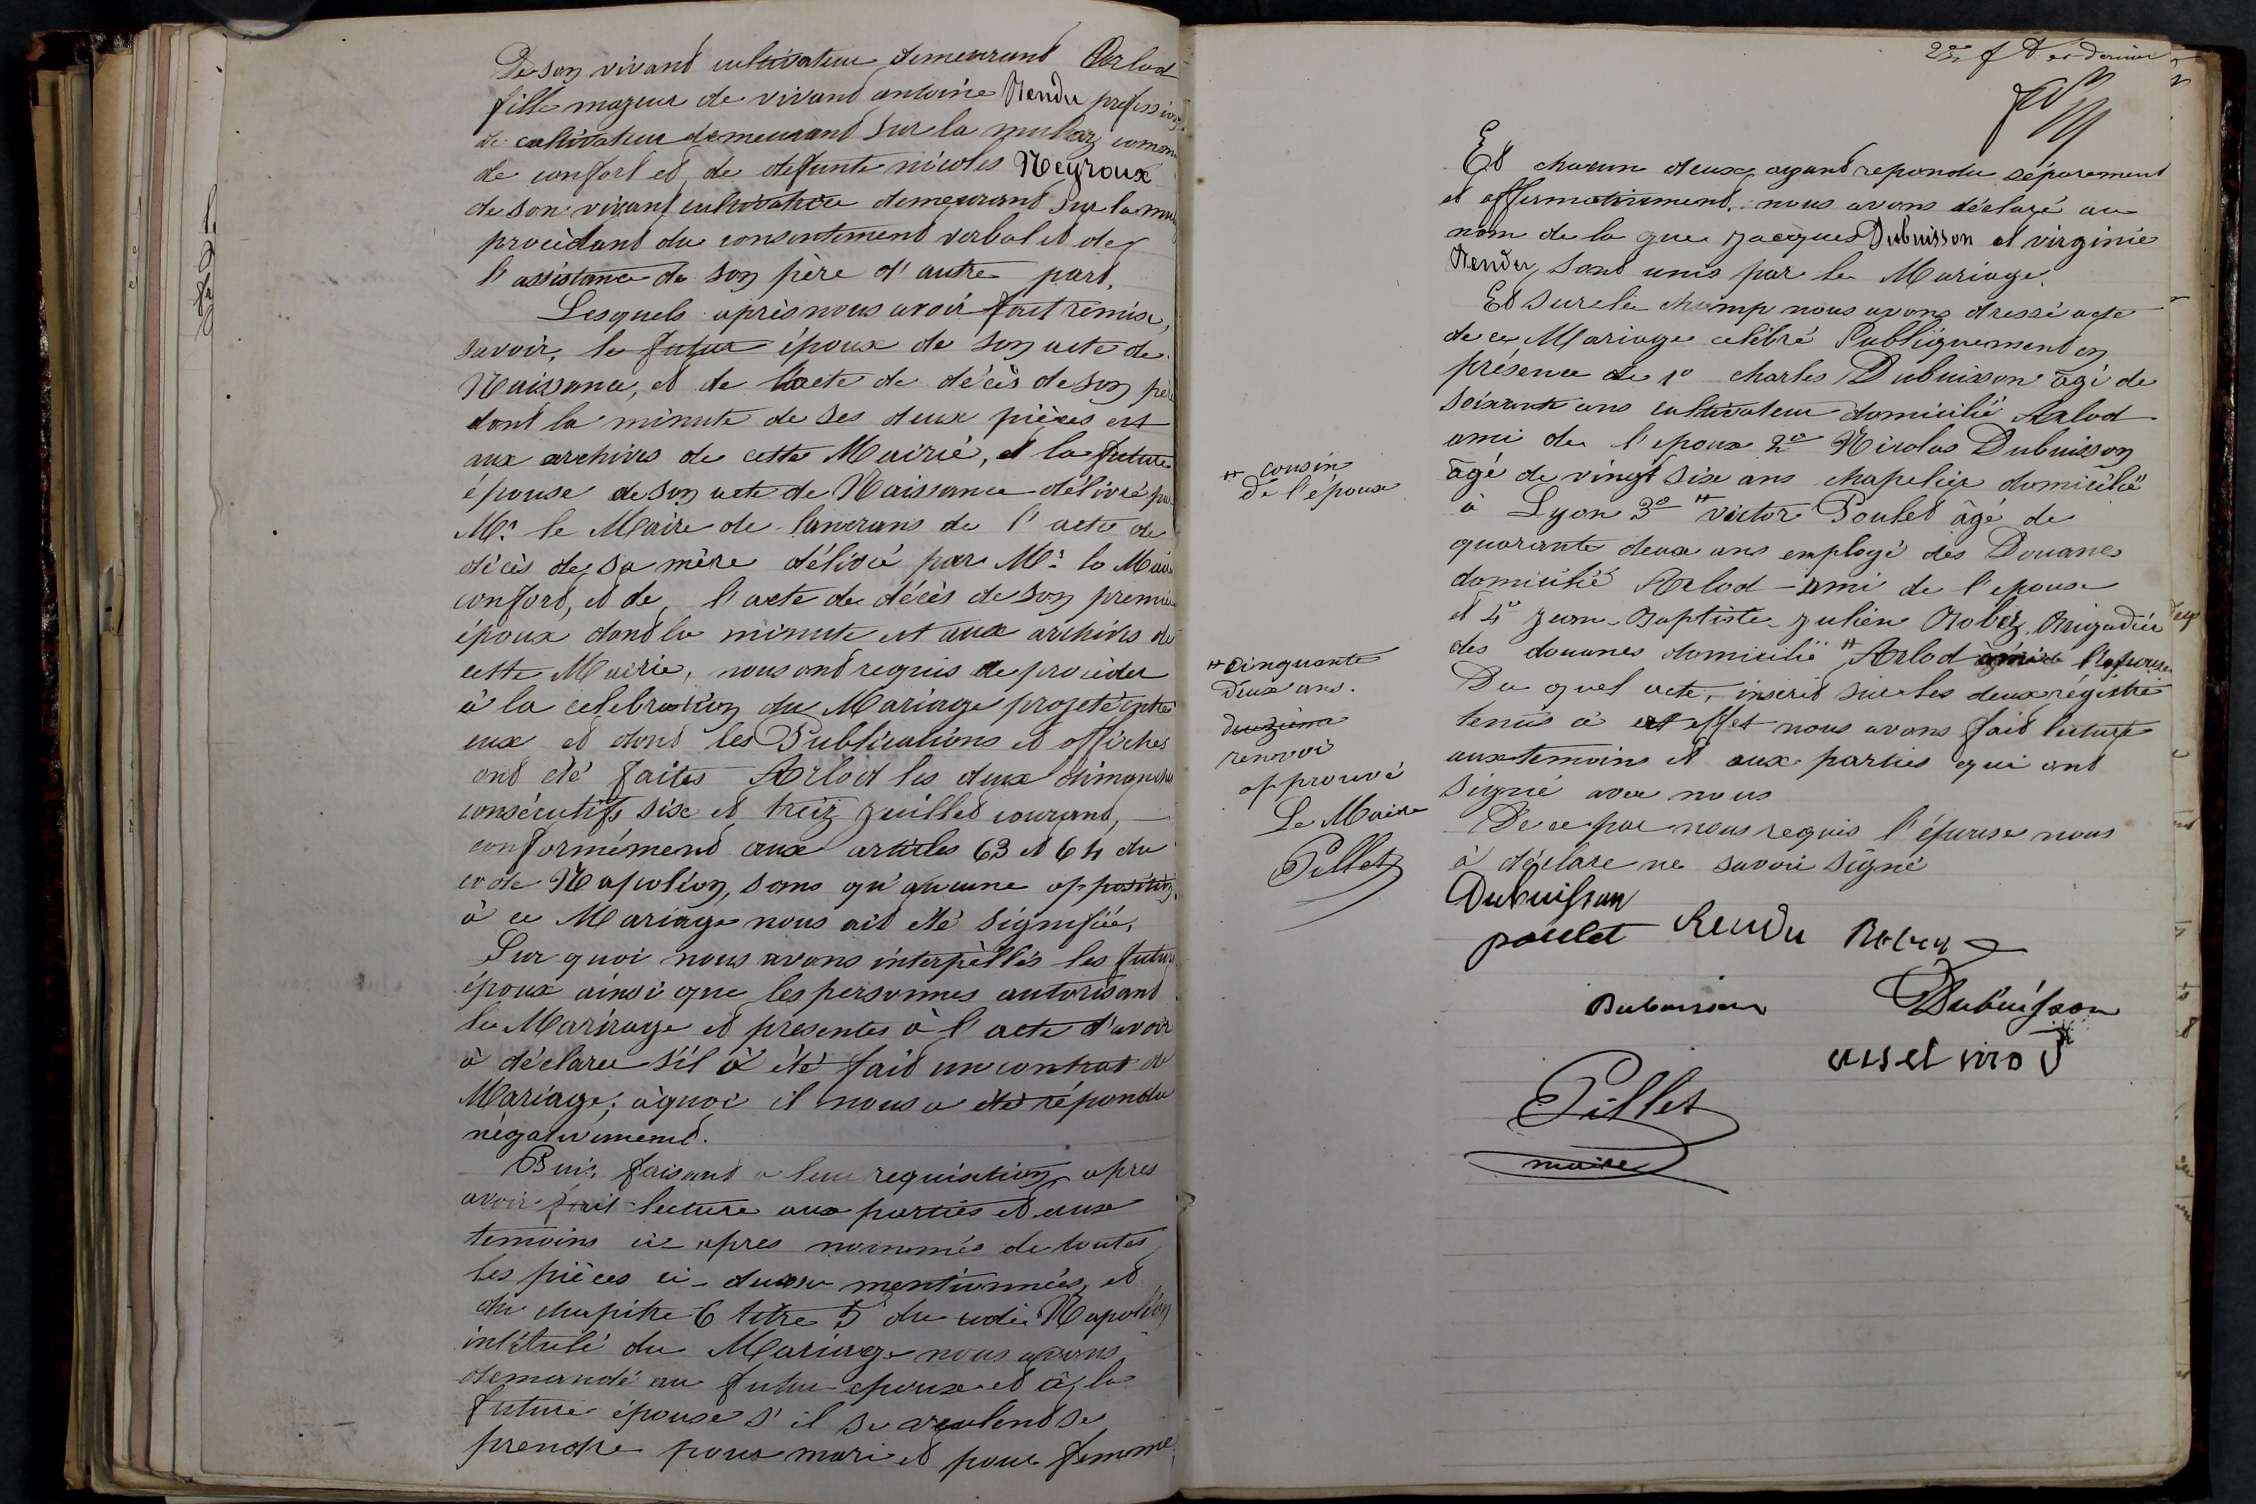 De son vivant cultivateur demeurant Arlod
fille mageur de vivant antoine Rendu profession
de cultivateur demeurant sur la mulaz comm
de confort et de defunte nicoles Neyroux
de son vivant cultivatrice demeurant sur la mul
procèdant du consentement verbal et de
l'assistance de son père d'autre part.
Lesquels après nous avoir fait remise,
savoir, le futur époux de son acte de
Naissance, et de l'acte de décès de son père
dont la minute de ses deux pièces est
aux archives de cette Mairie, et la future
épouse de son acte de Naissance délivré par
Mr. le Maire de lancrans de l'acte de
décès de sa mère délivré par Mr. le Maire
confort, et de l'acte de décès de son premier
époux dont la minute est aux archives de
cette Mairie, nous ont requis de procéder
à la celebration du Mariage projeté entre
eux et dont les Publications et affiches
ont été faites Arlod les deux dimanches
consécutifs six et treiz juillet courant,
conformément aux articles 63 et 64 du
code Napoléon, sans qu'aucune opposition
à ce Mariage nous ait été signifiée,
Sur quoi nous avons interpèllés les futurs
époux ainsi que les personnes autorisant
le Marirage et presentes à l'acte d'avoir
à déclarer s'il à été fait un contrat de
Mariage; àquoi il nous a été répondu
négativement.
Puis faisant a leur requisition, apres
avoir fait lecture aux parties et aux
temoins ci apres nommés de toutes
les pièces ci-dessu mentionnées, et
du chapitre 6 titre 5 du code Napoléon
intitulé du Mariage nous avons
demandé au futur epoux et à la
future épouse s'il se veulent se
prendre pour mari et pour femme
2me f et dernier
Et chacun deux ayant repondu séparement
et affirmativement. nous avons déclaré au
nom de la que jacques Dubuisson et virginie
Rendu, sont unis par le Mariage.
Et sur le champ nous avons dressé acte
de ce Mariage celébré Publiquement en
présence de 1o charles Dubuisson âgé de
soixante ans cultivateur domicilié Arlod
ami de l'epoux 2o Nicolas Dubuisson
âgé de vingt six ans chapelier domicilié
à Lyon 3o # victor Poulet âgé de
quarante deux ans employé des Douanes
domicilié Arlod - ami de l'epouse
et 4o Jean-Baptiste-julien Robez Brigadier
des douanes domicilié # Arlod ami de l'epouse
Du quel acte, inscrit sur les deux régistre
tenus à cet effet nous avons fait lecture
aux temoins et aux parties qui ont
signé avec nous
De ce par nous requis l'épouse nous
à déclare ne savoir signé
# cousin
de l'époux
# cinquante
deux ans.
deuzième
renvoi
approuvé
Le Maire
Pillet
Dubuisson
poulet Rendu Robez
Dubuisson Dubuisson
Pillet
maire